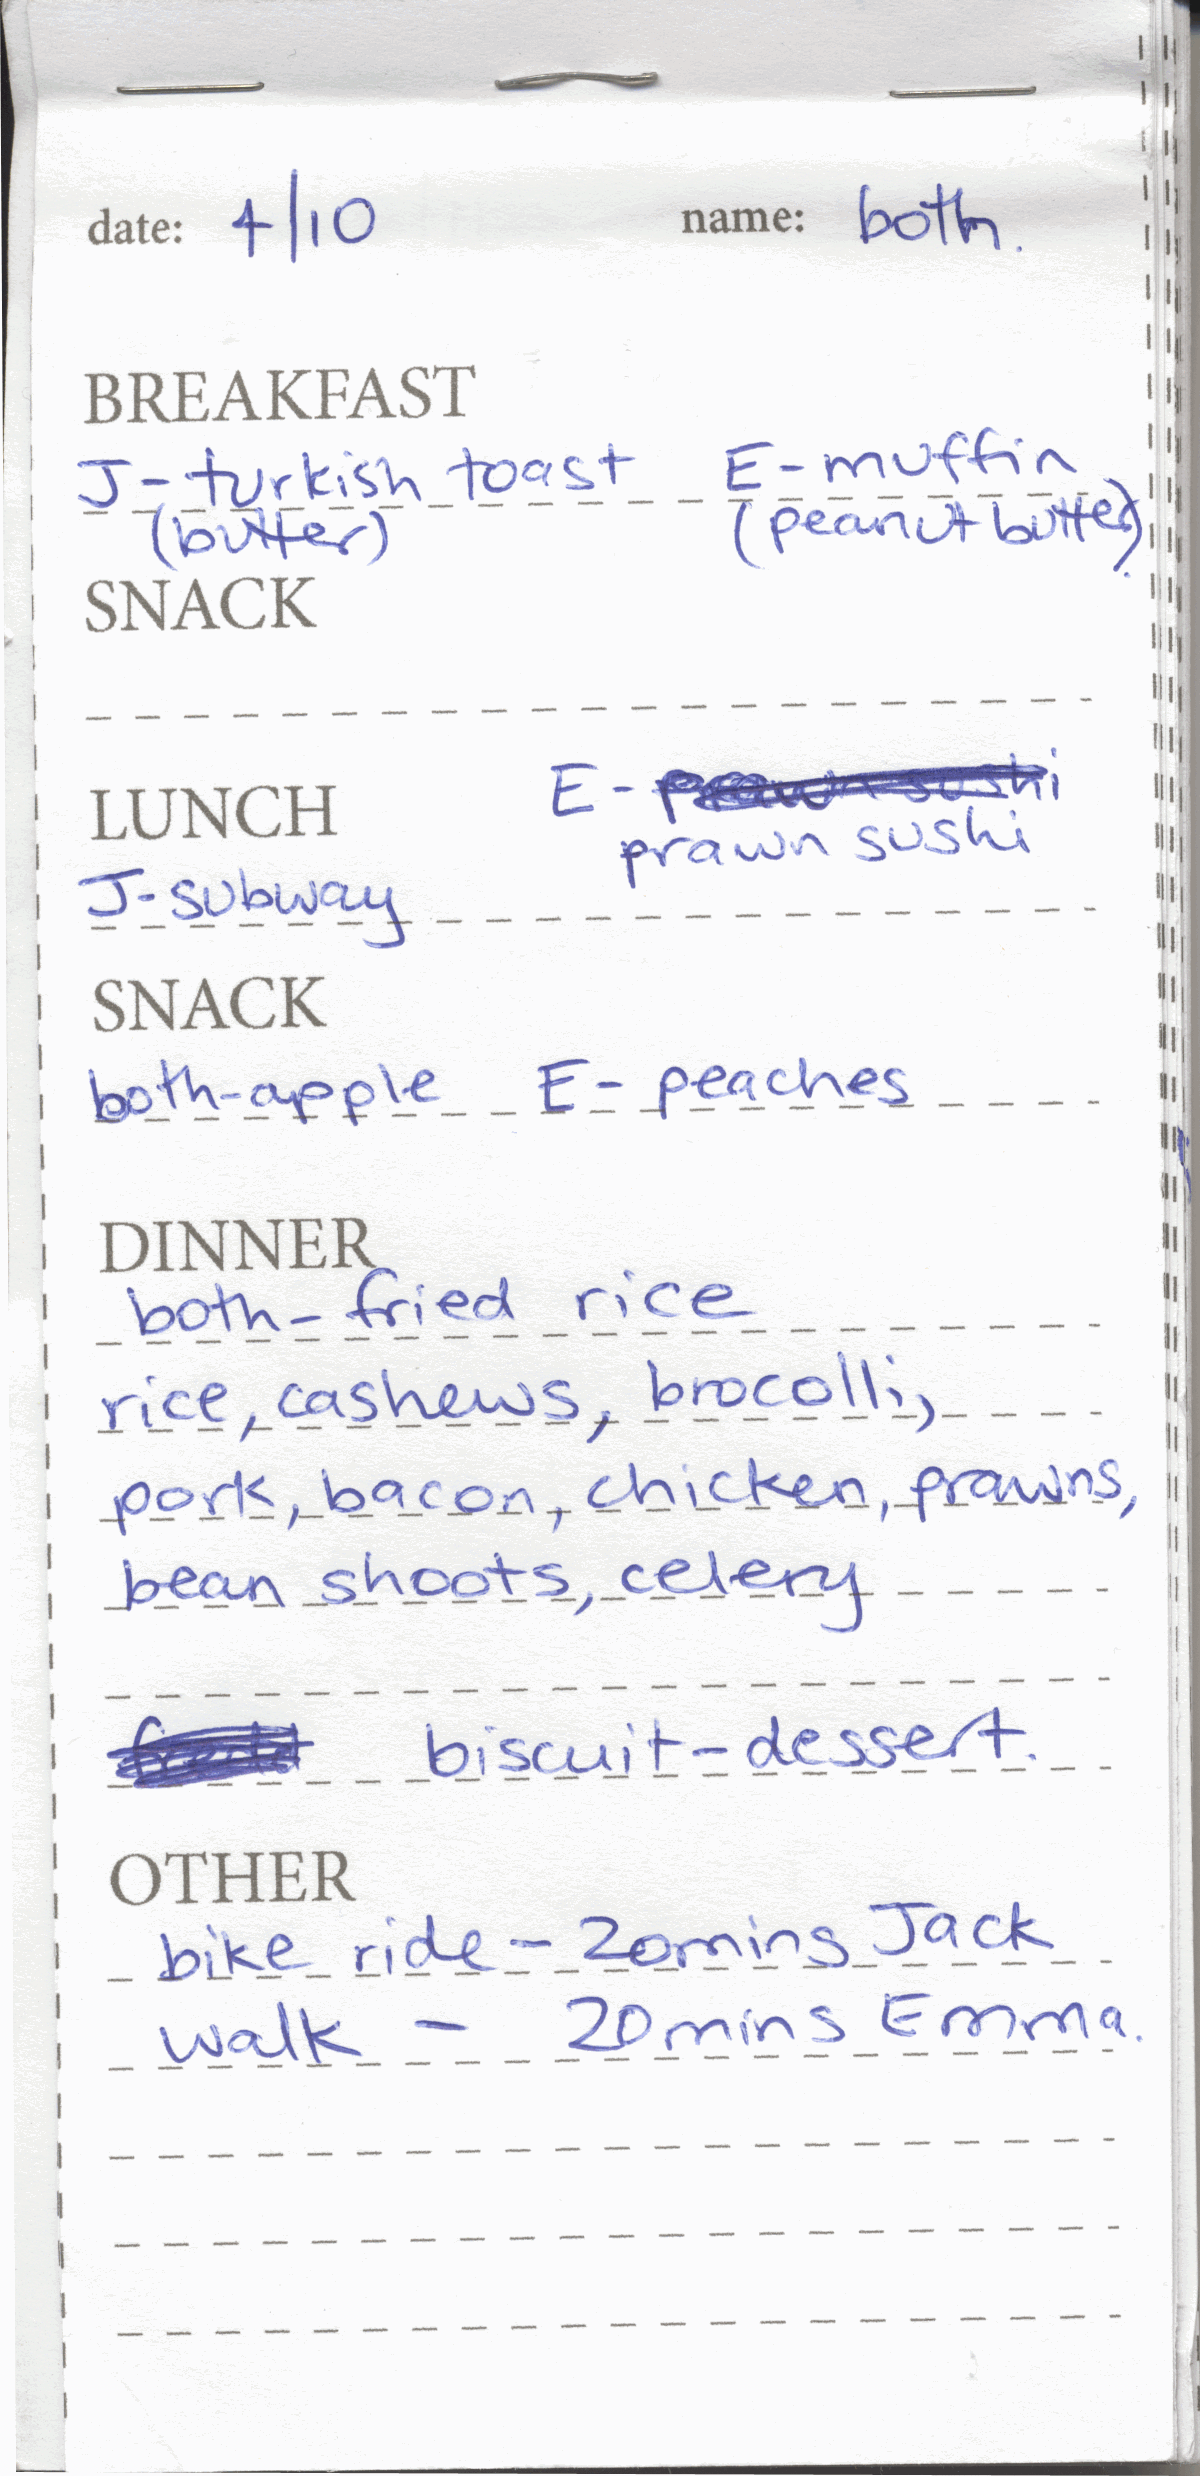 date: 4/10 name: both.
BREAKFAST
J-turkish toast E-muffin
(butter) (peanut butter).
SNACK
E-prawn sushi
LUNCH
prawn sushi
J-subway
SNACK
both-apple E- peaches
DINNER
both-fried rice
rice, cashews, brocolli,
pork, bacon, chicken, prawns,
bean shoots, celery
biscuit-dessert.
OTHER
bike ride - 20mins Jack
walk - 20mins Emma.